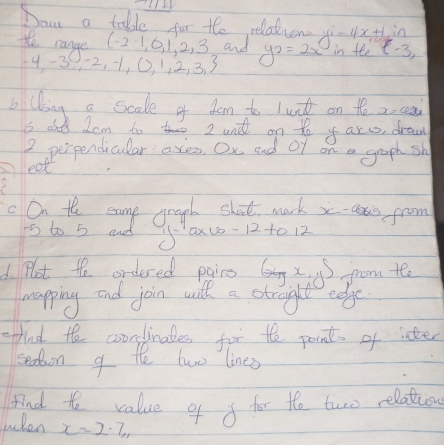 Draw a table for the relations y₁ = 4x+1, in
the range {-2 -1, 0, 1, 2, 3 and y₂ = 2x in the {-3,
-4, -3, -2, -1, 0, 1, 2, 3, }
b Using a scale of 2cm to 1 unit on the x-axis
and 2cm to 2 unit on the y axis, draw
2 perpendicular axes Ox and Oy on a graph sh
eet
c On the same graph sheet mark x-axis from
-5 to 5 and y-axis -12 to 12
d Plot the ordered pairs (x, y) from the
mapping and join with a straight edge.
e Find the coordinates for the points of inter
section of the two lines
Find the value of y for the two relations
when x = 2.7,,